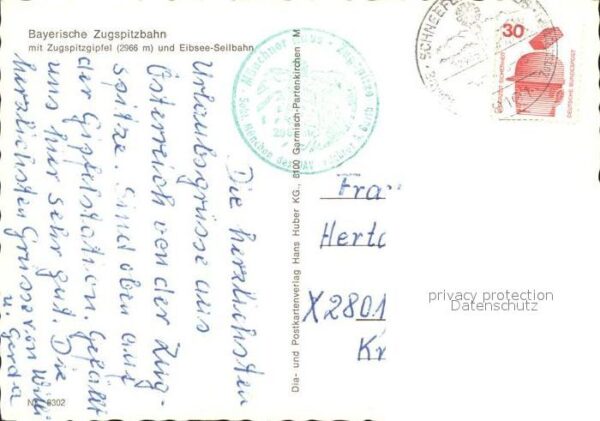 Bayerische Zugspitzbahn
mit Zugspitzgipfel (2966 m) und Eibsee-Seilbahn
Die herzlichsten
Urlaubsgrüsse aus
Österreich von der Zug-
spitze. Sind oben auf
der Gipfelstation. Gefällt
uns hier sehr gut. Die
herzlichsten Grüsse von Willi
u. Gerda
Nr. 8302
Dia- und Postkartenverlag Hans Huber KG., 8100 Garmisch-Partenkirchen · M
Münchner Haus · Zugspitze
SCHNEEFE
30
DEUTSCHE BUNDESPOST
Frau
Herta
X2801
Kr
privacy protection
Datenschutz